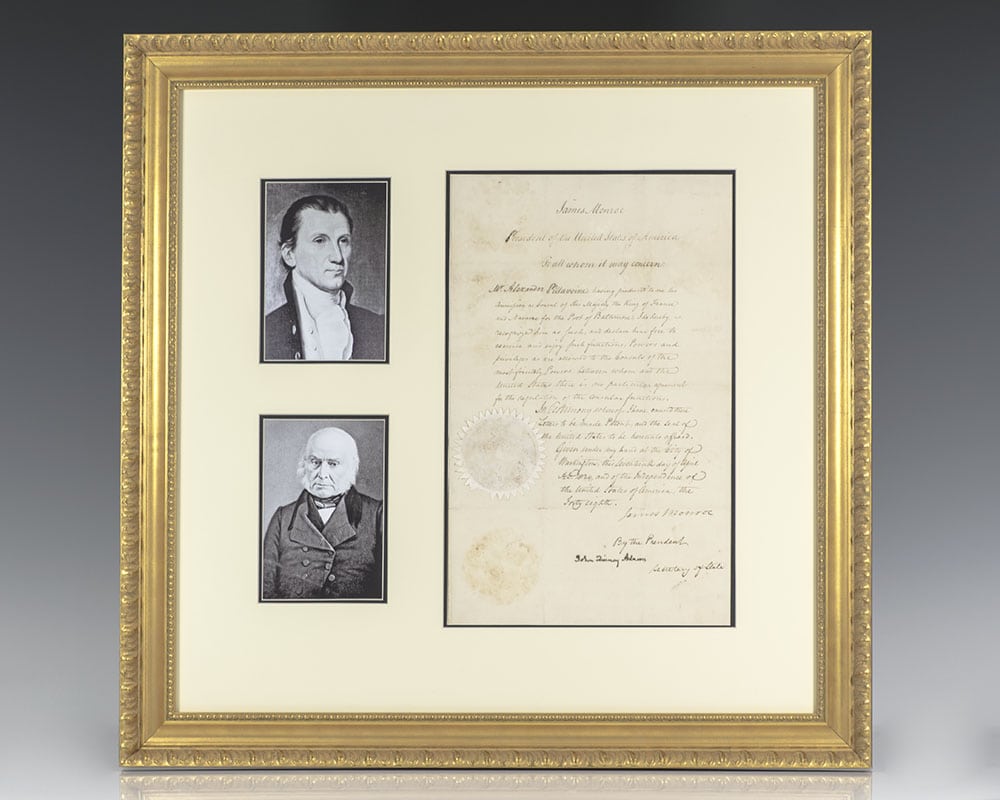 James Monroe
President of the United States of America
To all whom it may concern:
Mr. Alexander having produced to me his
Commission as Consul of His Majesty the King of France
and Navarre for the Port of Baltimore, I do hereby
recognize him as such, and declare him free to
exercise and enjoy such functions, Powers and
privileges as are allowed to the Consuls of the
most friendly Powers between whom and the
United States there is no particular agreement
for the regulation of the Consular functions.
In Testimony whereof I have caused these
Letters to be made Patent, and the Seal of
the United States to be hereunto affixed.
Given under my hand at the City of
Washington, this Seventeenth day of April
A.D. and of the Independence of
the United States of America, the
Forty eighth.
James Monroe
By the President
John Quincy Adams
Secretary of State